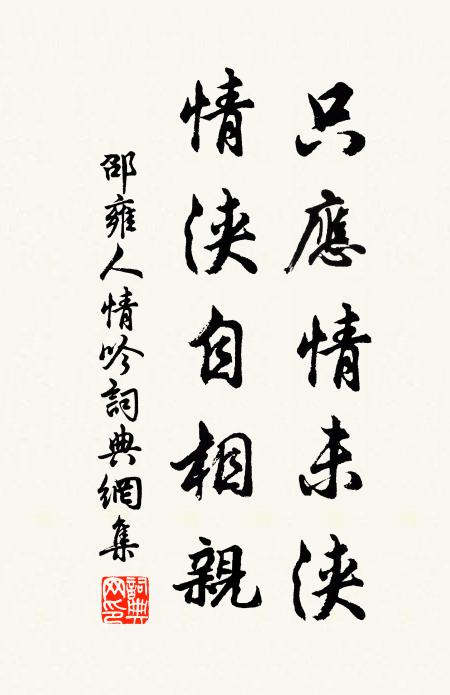 只應情未浹
情浹自相親
邵雍人情吟詞典網集
詞典網印